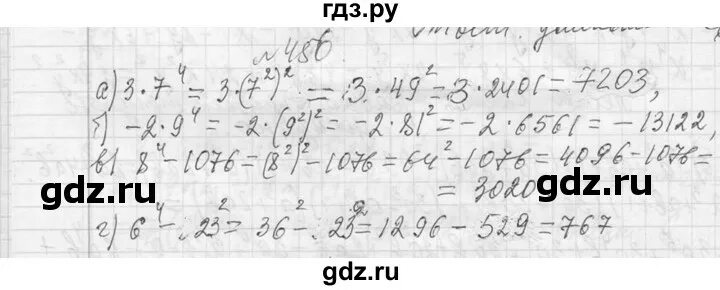 гдз.ру
№ 486.
а) 3·7⁴ = 3·(7²)² = 3·49² = 3·2401 = 7203,
б) -2·9⁴ = -2·(9²)² = -2·81² = -2·6561 = -13122,
в) 8⁴-1076 = (8²)²-1076 = 64²-1076 = 4096-1076 =
= 3020
г) 6⁴-23² = 36²-23² = 1296-529 = 767
gdz.ru
gdz.ru
gdz.ru